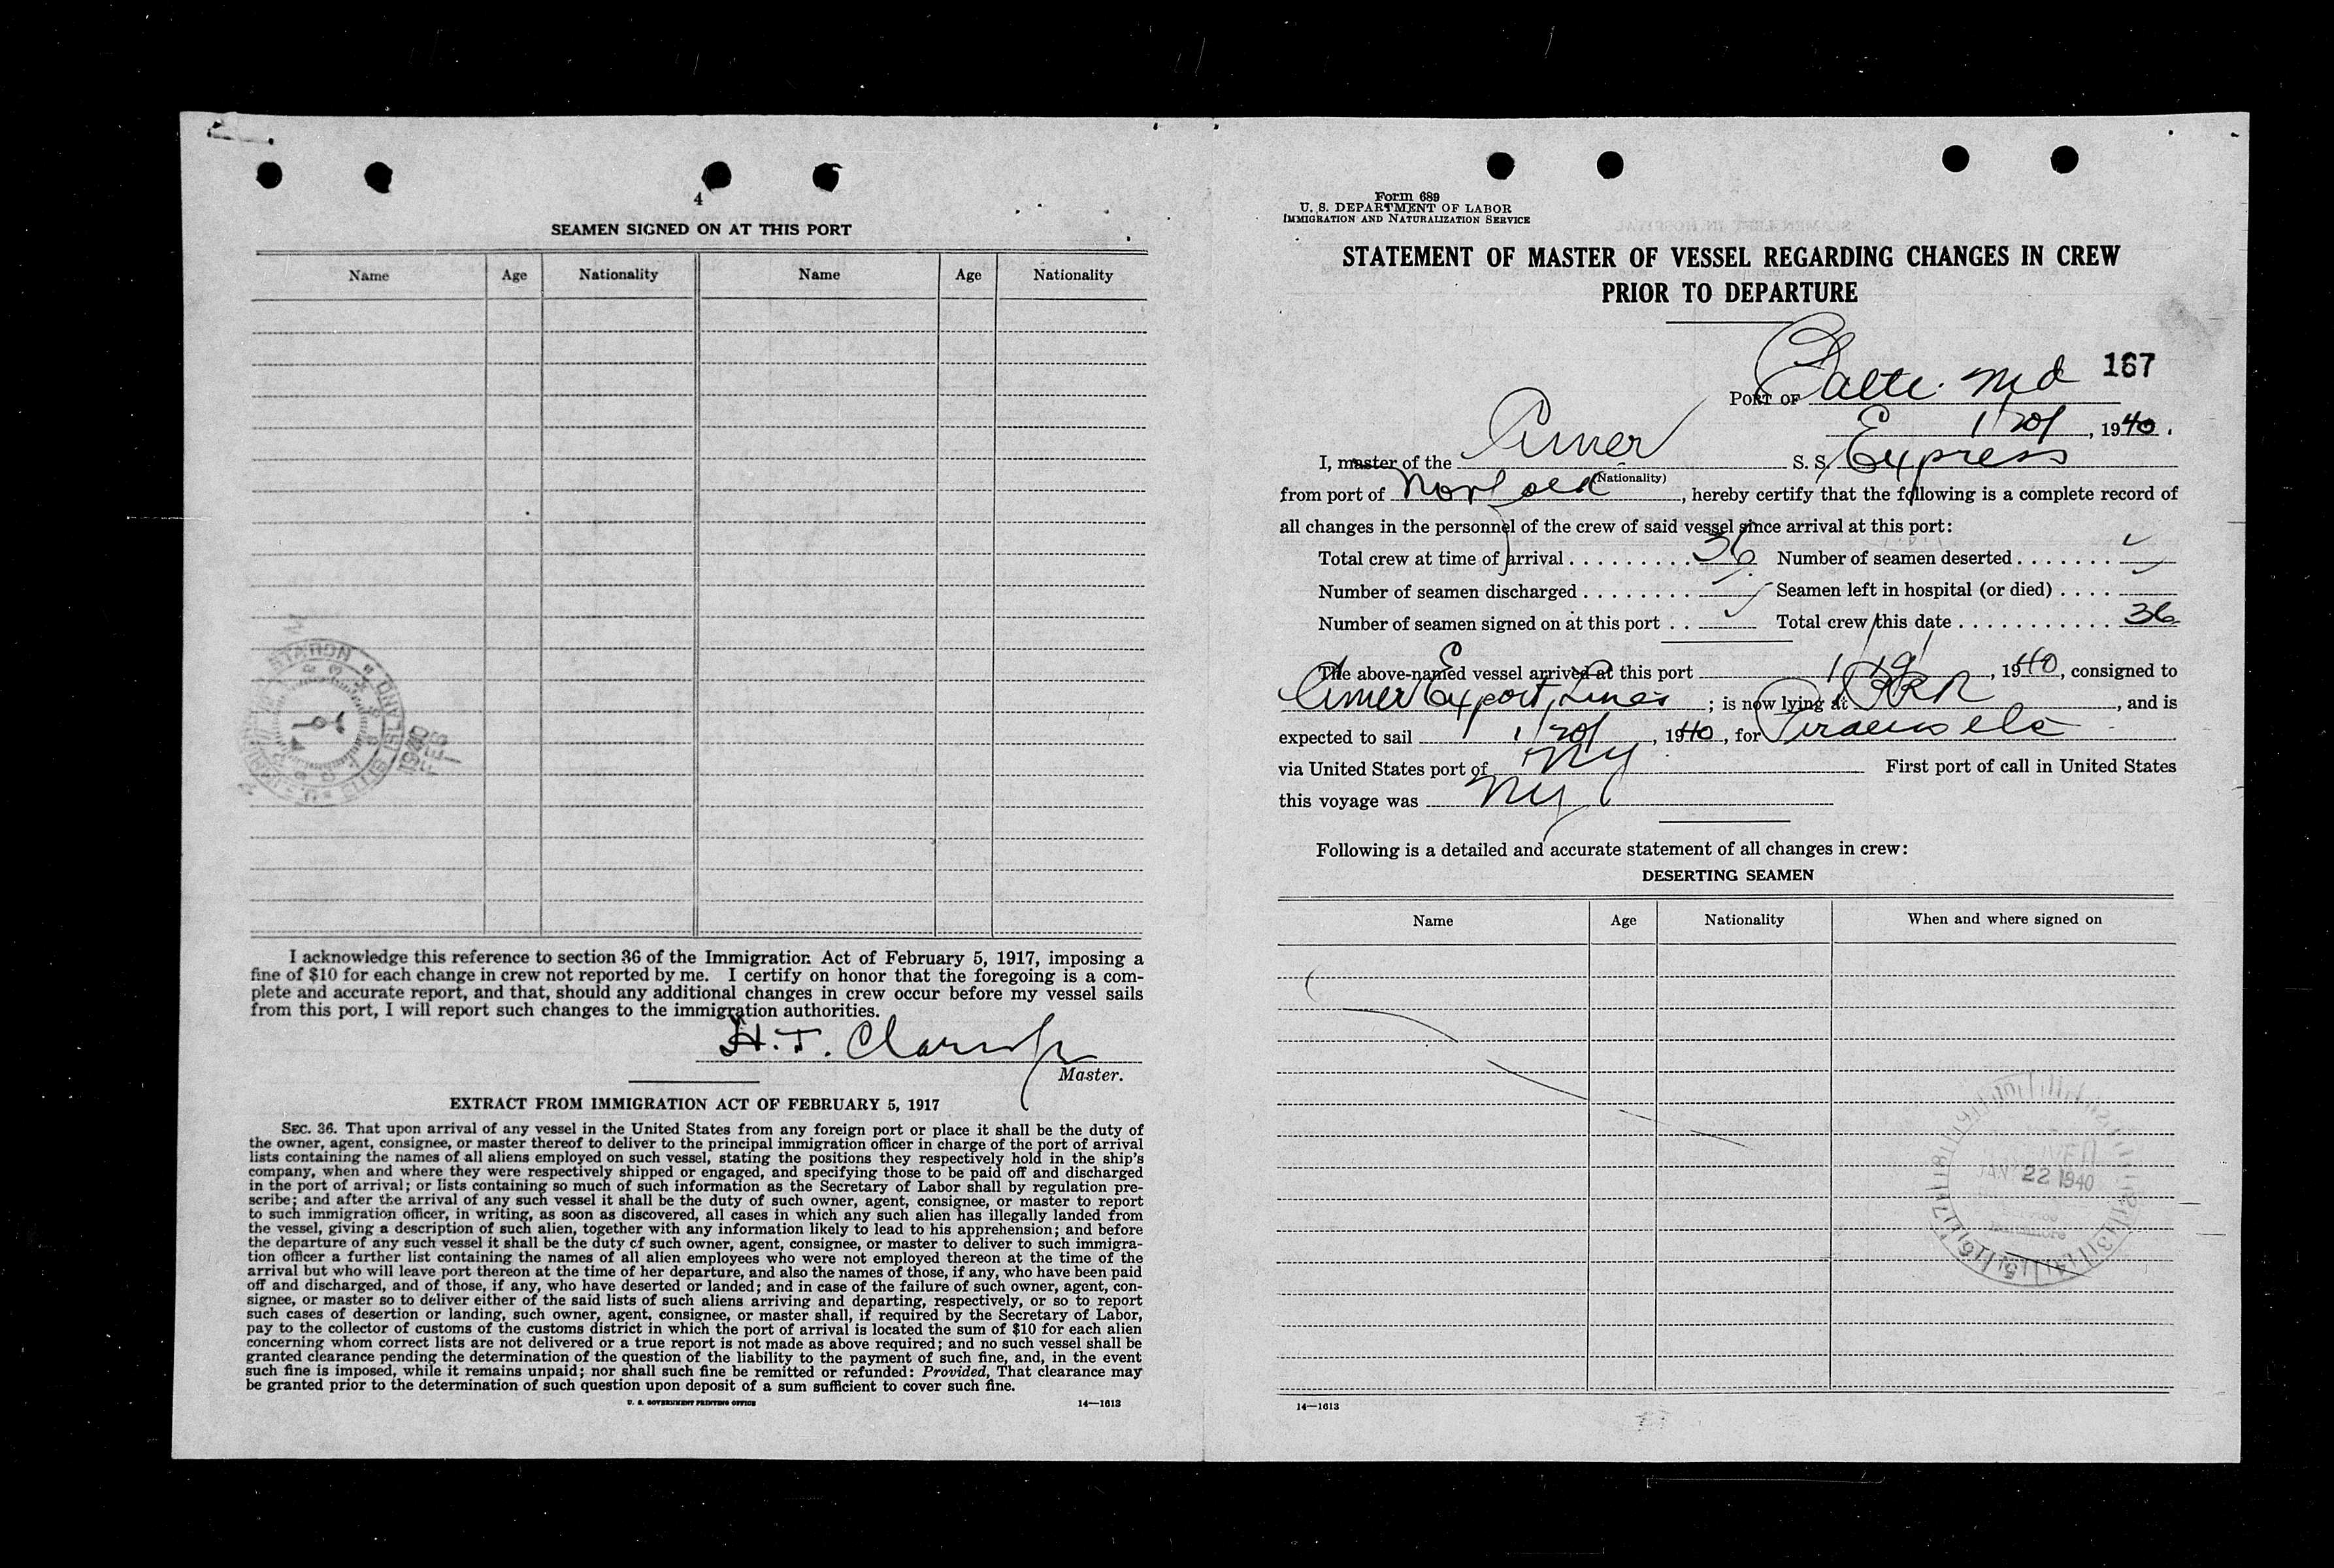 4
SEAMEN SIGNED ON AT THIS PORT
Name Age Nationality Name Age Nationality
I acknowledge this reference to section 36 of the Immigration Act of February 5, 1917, imposing a
fine of $10 for each change in crew not reported by me. I certify on honor that the foregoing is a com-
plete and accurate report, and that, should any additional changes in crew occur before my vessel sails
from this port, I will report such changes to the immigration authorities.
H. T.
Master.
EXTRACT FROM IMMIGRATION ACT OF FEBRUARY 5, 1917
SEC. 36. That upon arrival of any vessel in the United States from any foreign port or place it shall be the duty of
the owner, agent, consignee, or master thereof to deliver to the principal immigration officer in charge of the port of arrival
lists containing the names of all aliens employed on such vessel, stating the positions they respectively hold in the ship's
company, when and where they were respectively shipped or engaged, and specifying those to be paid off and discharged
in the port of arrival; or lists containing so much of such information as the Secretary of Labor shall by regulation pre-
scribe; and after the arrival of any such vessel it shall be the duty of such owner, agent, consignee, or master to report
to such immigration officer, in writing, as soon as discovered, all cases in which any such alien has illegally landed from
the vessel, giving a description of such alien, together with any information likely to lead to his apprehension; and before
the departure of any such vessel it shall be the duty of such owner, agent, consignee, or master to deliver to such immigra-
tion officer a further list containing the names of all alien employees who were not employed thereon at the time of the
arrival but who will leave port thereon at the time of her departure, and also the names of those, if any, who have been paid
off and discharged, and of those, if any, who have deserted or landed; and in case of the failure of such owner, agent, con-
signee, or master so to deliver either of the said lists of such aliens arriving and departing, respectively, or so to report
such cases of desertion or landing, such owner, agent, consignee, or master shall, if required by the Secretary of Labor,
pay to the collector of customs of the customs district in which the port of arrival is located the sum of $10 for each alien
concerning whom correct lists are not delivered or a true report is not made as above required; and no such vessel shall be
granted clearance pending the determination of the question of the liability to the payment of such fine, and, in the event
such fine is imposed, while it remains unpaid; nor shall such fine be remitted or refunded: Provided, That clearance may
be granted prior to the determination of such question upon deposit of a sum sufficient to cover such fine.
U. S. GOVERNMENT PRINTING OFFICE 14—1613
Form 689
U. S. DEPARTMENT OF LABOR
IMMIGRATION AND NATURALIZATION SERVICE
STATEMENT OF MASTER OF VESSEL REGARDING CHANGES IN CREW
PRIOR TO DEPARTURE
167
PORT OF Balto. Md
1/20/, 1940.
I, master of the Amer S. S. Express
(Nationality)
from port of Norfolk, hereby certify that the following is a complete record of
all changes in the personnel of the crew of said vessel since arrival at this port:
Total crew at time of arrival 36 Number of seamen deserted
Number of seamen discharged Seamen left in hospital (or died)
Number of seamen signed on at this port Total crew this date 36
The above-named vessel arrived at this port 1/19/, 1940, consigned to
Amer Export Lines; is now lying at , and is
expected to sail 1/20/, 1940, for
via United States port of NY First port of call in United States
this voyage was NY
Following is a detailed and accurate statement of all changes in crew:
DESERTING SEAMEN
Name Age Nationality When and where signed on
JAN 22 1940
14—1613